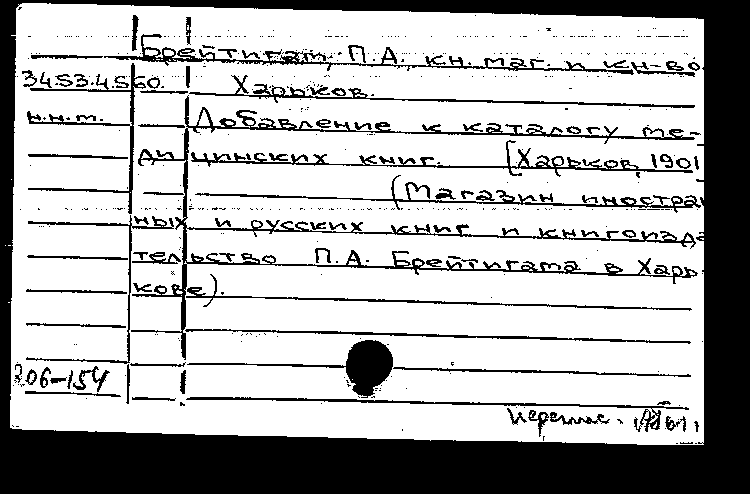 Брейтигам, П.А., кн. маг. и кн-во.
34.53.4.560. Харьков.
н.н.т. Добавление к каталогу ме-
дицинских книг. [Харьков, 1901
(Магазин иностра
ных и русских книг и книгоизда
тельство П.А. Брейтигама в Харь
кове).
306-154